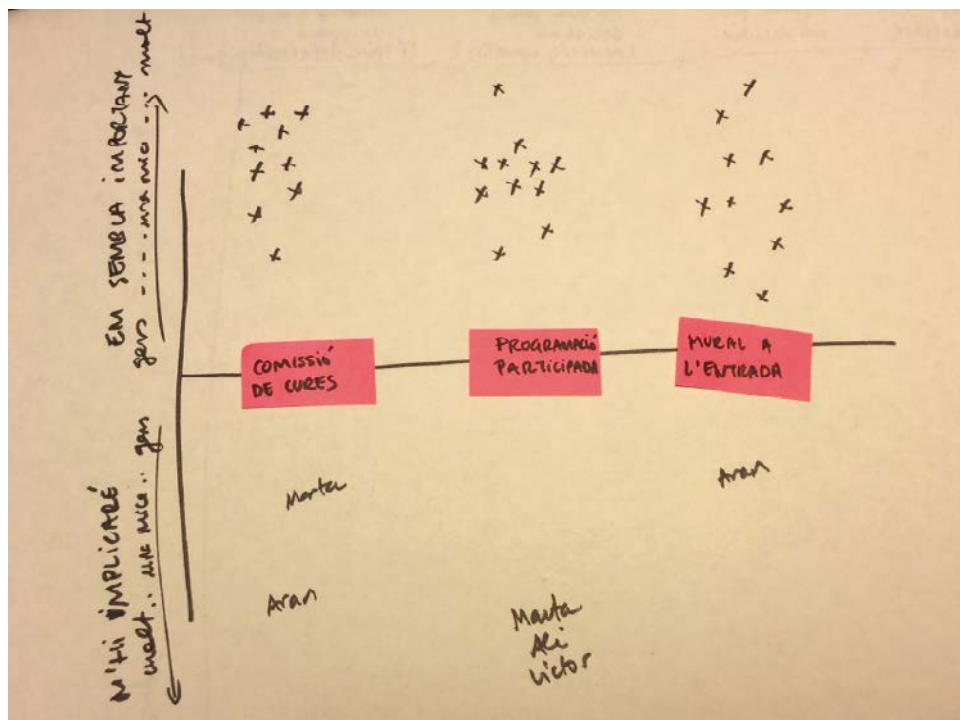 EM SEMBLA IMPORTANT
gens ..... una mica ... molt
M'HI IMPLICARÉ
molt .. una mica .. gens
COMISSIÓ
DE CURES
PROGRAMACIÓ
PARTICIPADA
MURAL A
L'ENTRADA
Marta
Aran
Marta
Ali
Victor
Aran